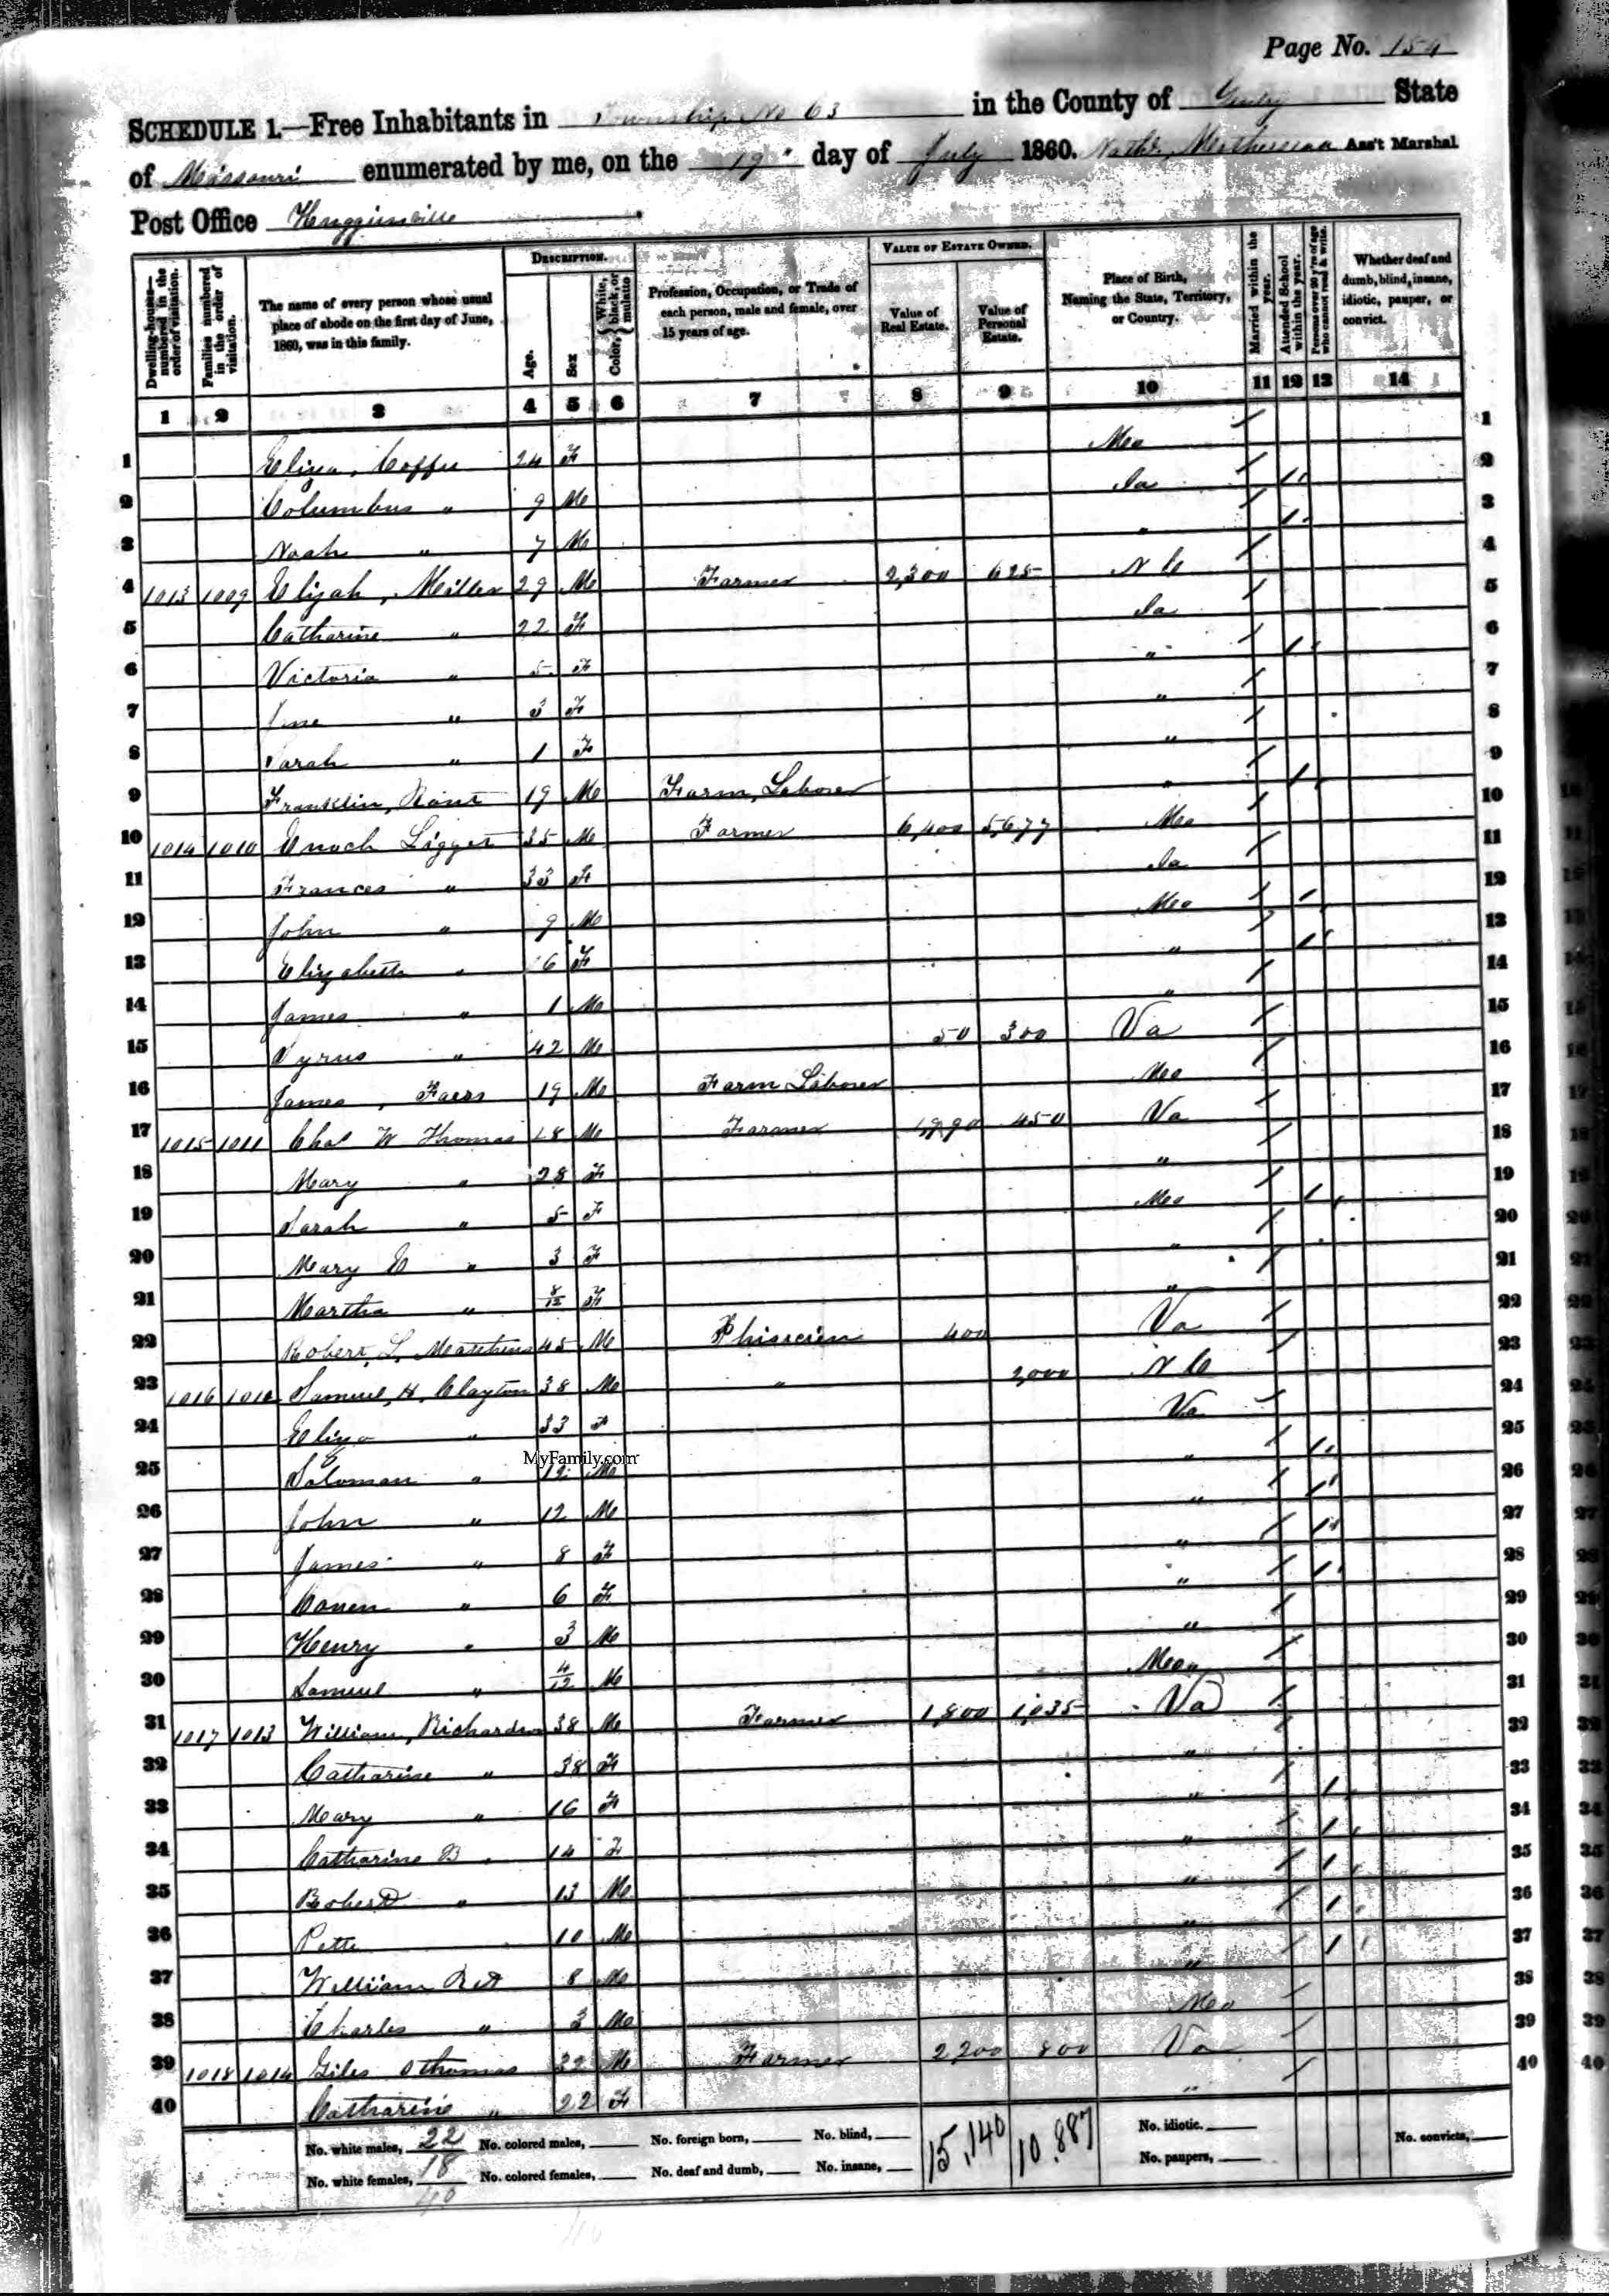 Page No. 154
SCHEDULE 1.—Free Inhabitants in Township No 63 in the County of Gentry State
of Missouri enumerated by me, on the 19" day of July 1860. Ass't Marshal
Post Office
Dwelling-houses—numbered in the order of visitation.
Families numbered in the order of visitation.
The name of every person whose usual place of abode on the first day of June, 1860, was in this family.
DESCRIPTION.
Age.
Sex
Color, { White, black, or mulatto
Profession, Occupation, or Trade of each person, male and female, over 15 years of age.
VALUE OF ESTATE OWNED.
Value of Real Estate.
Value of Personal Estate.
Place of Birth, Naming the State, Territory, or Country.
Married within the year.
Attended School within the year.
Persons over 20 y'rs of age who cannot read & write.
Whether deaf and dumb, blind, insane, idiotic, pauper, or convict.
1 2 3 4 5 6 7 8 9 10 11 12 13 14
1 Eliza, Coffee 24 F Mo / 1
2 Columbus " 9 M Ia / / 2
3 Noah " 7 M " / / 3
4 1013 1009 Elijah, Miller 29 M Farmer 2,300 625 N C / 4
5 Catharine " 22 F Ia / 5
6 Victoria " 5 F " / / 6
7 Jane " 3 F " / 7
8 Sarah " 1 F " / 8
9 Franklin, 19 M Farm, Laborer " / / 9
10 1014 1010 Enoch Ligget 35 M Farmer 6,400 5,677 Mo / 10
11 Frances " 33 F Ia / 11
12 John " 9 M Mo / / 12
13 Elizabeth " 6 F " / / 13
14 James " 1 M " / 14
15 Cyrus " 42 M 50 300 Va / 15
16 James, 19 M Farm Laborer Mo / 16
17 1015 1011 Chas W Thomas M Farmer 450 Va / 17
18 Mary " 28 F " / 18
19 Sarah " 5 F Mo / / 19
20 Mary E " 3 F " / 20
21 Martha " 8/12 F " / 21
22 Robert, L, 45 M Phisician 400 Va / 22
23 1016 1012 Samuel, H, Clayton 38 M " 2,000 N C / 23
24 Eliza " 33 F Va / 24
25 Soloman " 12 M " / / 25
26 John " 12 M " / / 26
27 James " 8 F " / / 27
28 " 6 F " / / 28
29 Henry " 3 M " / 29
30 Samuel " 4/12 M Mo / 30
31 1017 1013 William, Richardson 38 M Farmer 1,800 1,035 Va / 31
32 Catharine " 38 F " / 32
33 Mary " 16 F " / / 33
34 Catharine B " 14 F " / / 34
35 Robert " 13 M " / / 35
36 10 M " / / 36
37 William 8 M " / / 37
38 Charles " 3 M Mo / 38
39 1018 1014 Giles Thomas 32 M Farmer 2,200 800 Va / 39
40 Catharine " 22 F " / 40
No. white males, 22 No. colored males, No. foreign born, No. blind, 15,140 10,887 No. idiotic. No. convicts,
No. white females, 18 No. colored females, No. deaf and dumb, No. insane, No. paupers,
40
40
MyFamily.com